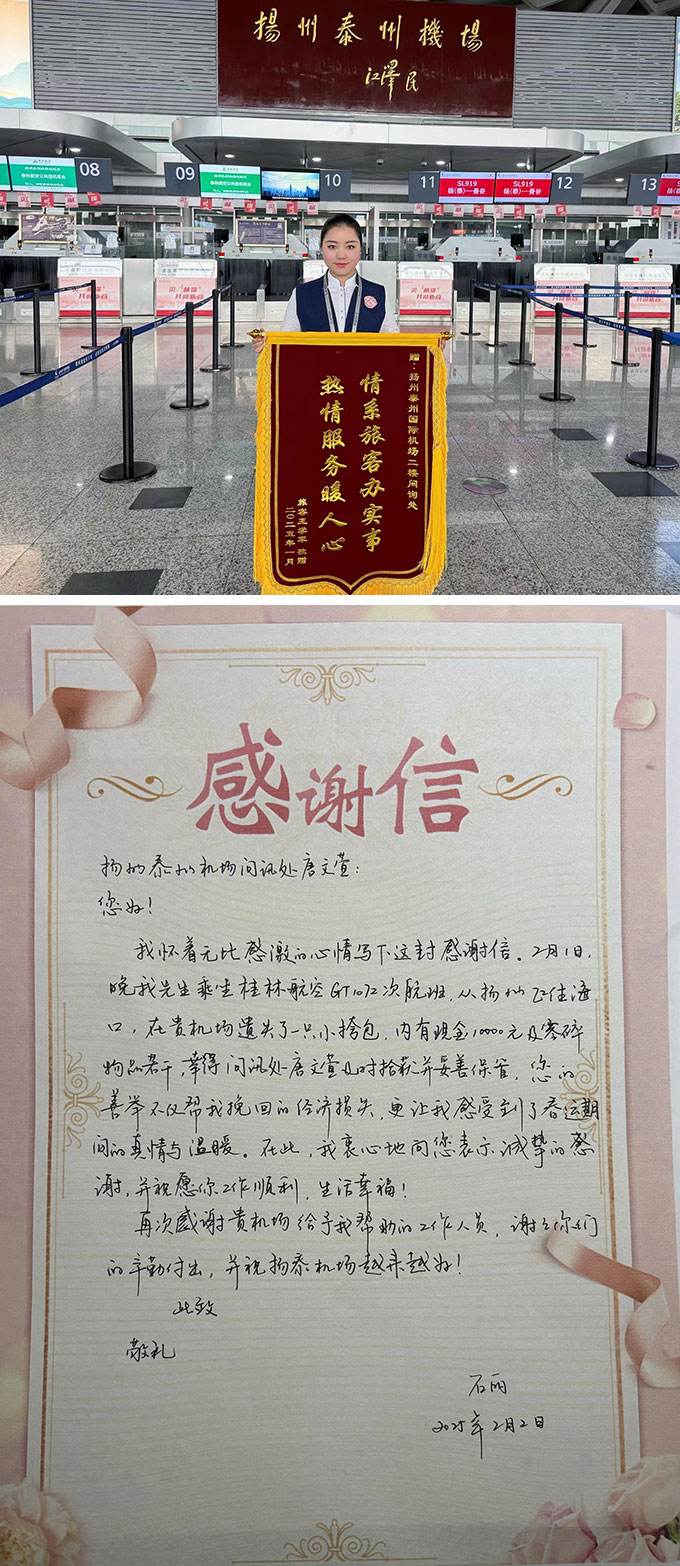 揚州泰州機場
江澤民
08
09
10
11
SL919
扬(泰)一曼谷
SL919
扬(泰)一曼谷
12
13
赠：扬州泰州国际机场二楼问询处
情系旅客办实事
热情服务暖人心
旅客王学军 敬赠
二〇二五年一月
感谢信
扬州泰州机场问讯处唐文萱：
您好！
我怀着无比感激的心情写下这封感谢信。2月1日，
晚我先生乘坐桂林航空GT1072次航班，从扬州飞往海
口，在贵机场遗失了一只小挎包，内有现金10000元及零碎
物品若干，幸得问讯处唐文萱及时拾获并妥善保管，您的
善举不仅帮我挽回的经济损失，更让我感受到了春运期
间的真情与温暖。在此，我衷心地向您表示诚挚的感
谢，并祝愿你工作顺利，生活幸福！
再次感谢贵机场给予我帮助的工作人员，谢谢你们
的辛勤付出，并祝扬泰机场越来越好！
此致
敬礼
石丽
2025年2月2日